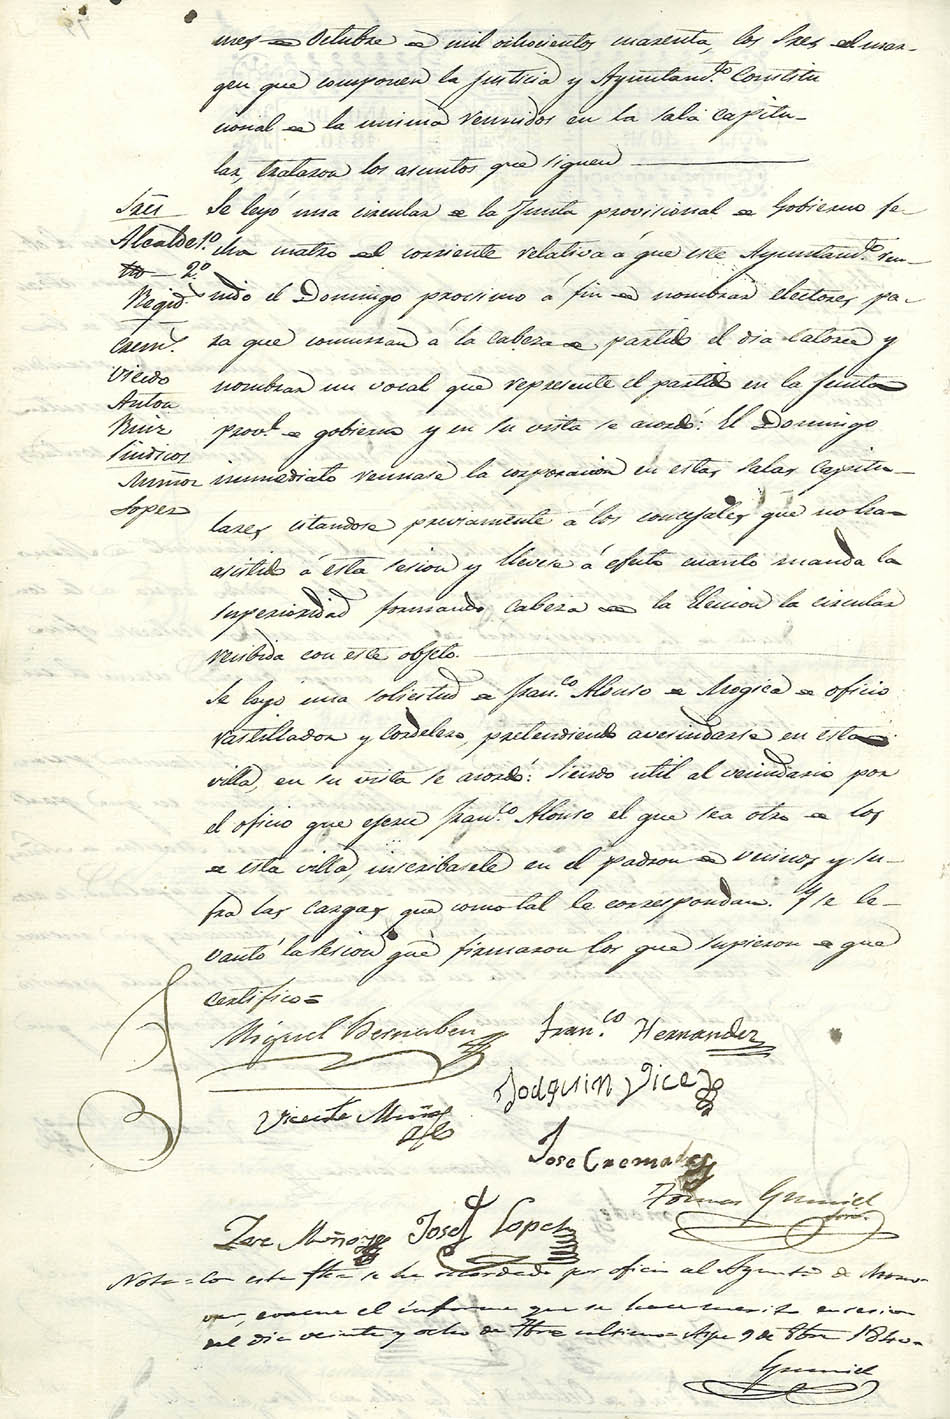 mes de Octubre de mil ochocientos cuarenta, los Sres del mar-
gen que componen la Justicia y Ayuntam.to Constitu
cional de la misma reunidos en la sala capitu-
lar, trataron los asuntos que siguen
Sres
Alcalde 1.º
2.º
Regid.
Crem.s
Vicedo
Anton
Ruiz
Sindicos
Muñoz
Lopez
Se leyó una circular de la Junta provisional de Gobierno fe-
cha cuatro del corriente relativa á que este Ayuntam.to reu-
nido el Domingo procsimo á fin de nombrar electores pa-
ra que concurran á la cabeza de partido el dia catorce y
nombrar un vocal que represente el partido en la Junta
prov.l de gobierno y en su vista se acordó: El Domingo
inmediato reunase la corporacion en estas salas capitu-
lares, citandose previamente á los concejales que no han
asistido á esta sesion y llevese á efecto cuanto manda la
superioridad formando cabeza de la Eleccion la circular
recibida con este objeto.
Se leyó una solicitud de Fran.co Alonso de Mogica de oficio
rastillador y cordelero, pretendiendo avecindarse en esta
villa, en su vista se acordó: Siendo util al vecindario por
el oficio que ejerce Fran.co Alonso el que sea otro de los
de esta villa, inscribasele en el padron de vecinos y su-
fra las cargas que como tal le correspondan. Y se le-
vantó la sesion que firmaron los que supieron de que
certifico=
Miguel Bernabeu
Fran.co Hernandez
Joaquin Vicedo
Vicente Muñoz
Jose Cremades
Tomas Gumiel
Jose Muñoz
Josef Lopez
Nota = Con esta fha se ha recordado por oficio al Ayunto de Mono-
var, evacue el informe que se hace merito en sesion
del dia veinte y ocho de 7bre ultimo = Aspe 9 de 8bre 1840=
Gumiel